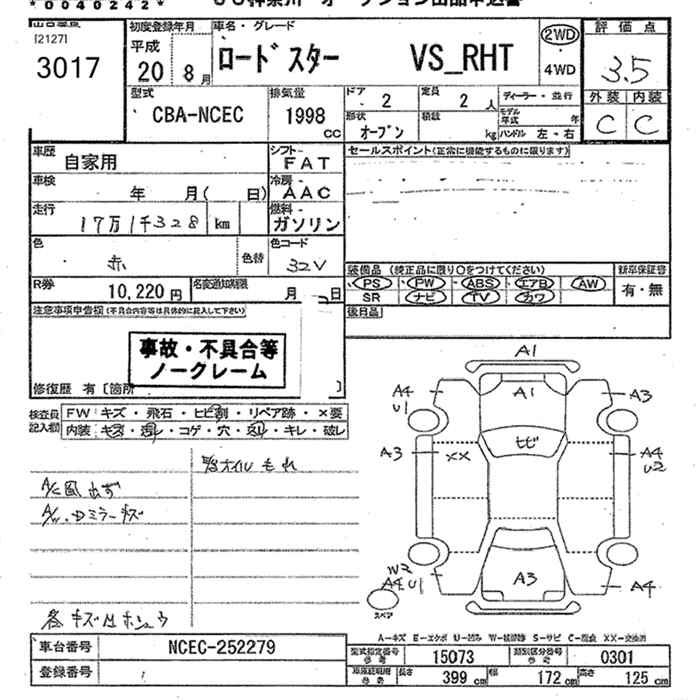 *0040242*
[2127]
3017
初度登録年月
平成
20 8月
車名・グレード
ロードスター VS_RHT
2WD
4WD
評価点
3.5
外装 内装
C C
型式
CBA-NCEC
排気量
1998
cc
ドア 2
定員 2 人
ディーラー・並行
形状 オープン
積載 kg
モデル年式 年
ハンドル 左・右
車歴 自家用
シフト FAT
セールスポイント(正常に機能するものに限ります)
車検 年 月( 日)
冷房 AAC
走行 17万1千328 km
燃料 ガソリン
色 赤
色替
色コード 32V
R券 10,220円
名変通知期限 月 日
装備品 (純正品に限り○をつけてください)
新車保証書
PS PW ABS エアB AW
SR ナビ TV カワ
有・無
注意事項申告欄(不具合内容等は具体的に記入して下さい)
後日品
事故・不具合等
ノークレーム
修復歴 有 [箇所 ]
検査員
記入欄
FW キズ・飛石・ヒビ割・リペア跡・×要
内装 キズ・汚レ・コゲ・穴・スリ・キレ・破レ
E/gオイルもれ
A/C風出ず
A/W・Dミラーキズ
各キズ凹ホシュウ
A1
A1
A4
U1
A3
ヒビ
A3
XX
A4
U2
W2
A4 U1
A3
A4
スペア
A-キズ E-エクボ U-凹み W-補修跡 S-サビ C-腐食 XX-交換済
車台番号 NCEC-252279
登録番号
型式指定番号
参考
15073
類別区分番号
参考
0301
車庫証明用
参考
長さ 399 cm
幅 172 cm
高さ 125 cm